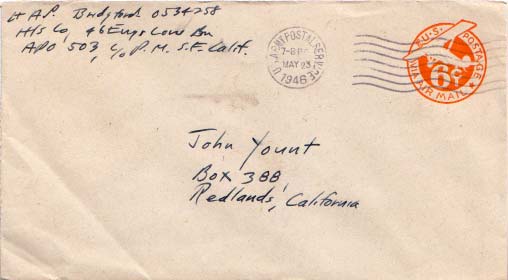 Lt A.P. Bridgford 0534258
H/S Co, 46 Engr Cons Bn
APO 503, c/o P.M. S.F. Calif.
U.S. ARMY POSTAL SERVICE
7-8 PM
MAY 23
1946
U.S. POSTAGE
6¢
VIA AIR MAIL
John Yount
Box 388
Redlands, California